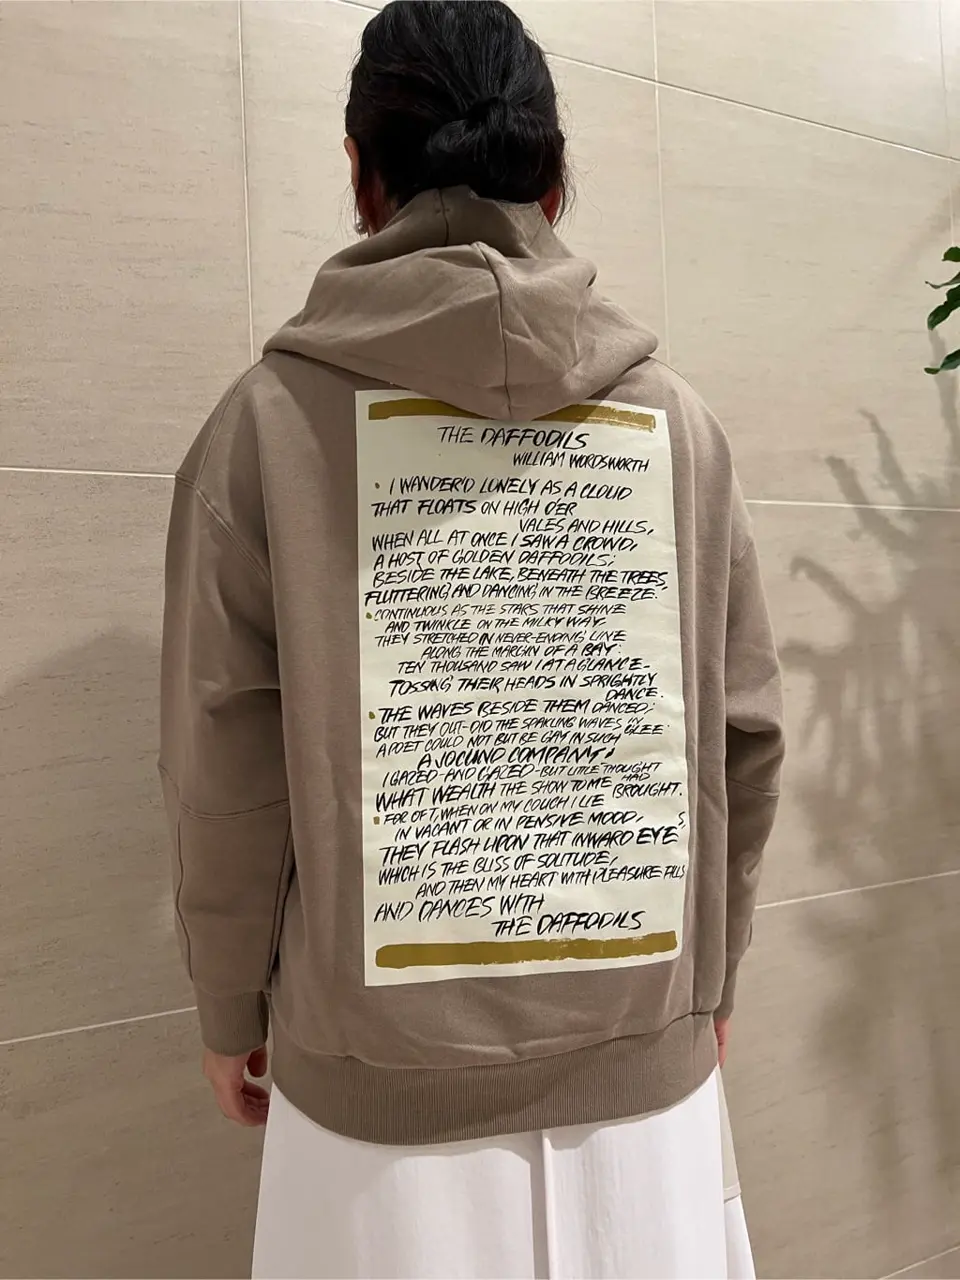 THE DAFFODILS
WILLIAM WORDSWORTH
• I WANDER'D LONELY AS A CLOUD
THAT FLOATS ON HIGH O'ER
VALES AND HILLS,
WHEN ALL AT ONCE I SAW A CROWD,
A HOST OF GOLDEN DAFFODILS;
BESIDE THE LAKE, BENEATH THE TREES,
FLUTTERING AND DANCING IN THE BREEZE.
• CONTINUOUS AS THE STARS THAT SHINE
AND TWINKLE ON THE MILKY WAY.
THEY STRETCHED IN NEVER-ENDING LINE
ALONG THE MARGIN OF A BAY:
TEN THOUSAND SAW I AT A GLANCE-
TOSSING THEIR HEADS IN SPRIGHTLY
DANCE.
• THE WAVES BESIDE THEM DANCED;
BUT THEY OUT-DID THE SPAKLING WAVES IN
GLEE:
A POET COULD NOT BUT BE GAY IN SUCH
A JOCUND COMPANY!
I GAZED-AND GAZED-BUT LITTLE THOUGHT
WHAT WEALTH THE SHOW TO ME HAD
BROUGHT.
• FOR OFT, WHEN ON MY COUCH I LIE
IN VACANT OR IN PENSIVE MOOD,
THEY FLASH UPON THAT INWARD EYE
WHICH IS THE BLISS OF SOLITUDE,
AND THEN MY HEART WITH PLEASURE FILLS
AND DANCES WITH
THE DAFFODILS